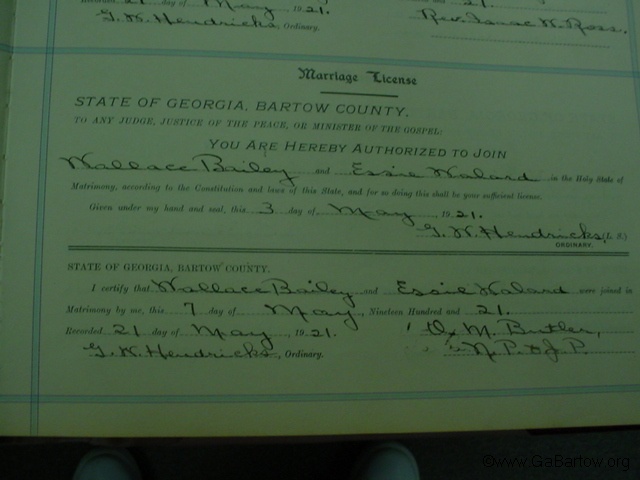 Recorded 21 day of May 1921. and 21.
G. W. Hendricks, Ordinary. Rev. Isaac W. Ross.
Marriage License
STATE OF GEORGIA, BARTOW COUNTY.
TO ANY JUDGE, JUSTICE OF THE PEACE, OR MINISTER OF THE GOSPEL:
YOU ARE HEREBY AUTHORIZED TO JOIN
Wallace Bailey and Essie Walard in the Holy State of
Matrimony, according to the Constitution and laws of this State, and for so doing this shall be your sufficient license.
Given under my hand and seal, this 3 day of May 1921.
G. W. Hendricks, (L. S.)
ORDINARY.
STATE OF GEORGIA, BARTOW COUNTY.
I certify that Wallace Bailey and Essie Walard were joined in
Matrimony by me, this 7 day of May, Nineteen Hundred and 21.
Recorded 21 day of May, 1921. M. Butler,
G. W. Hendricks, Ordinary. N. P. & J. P.
©www.GaBartow.org